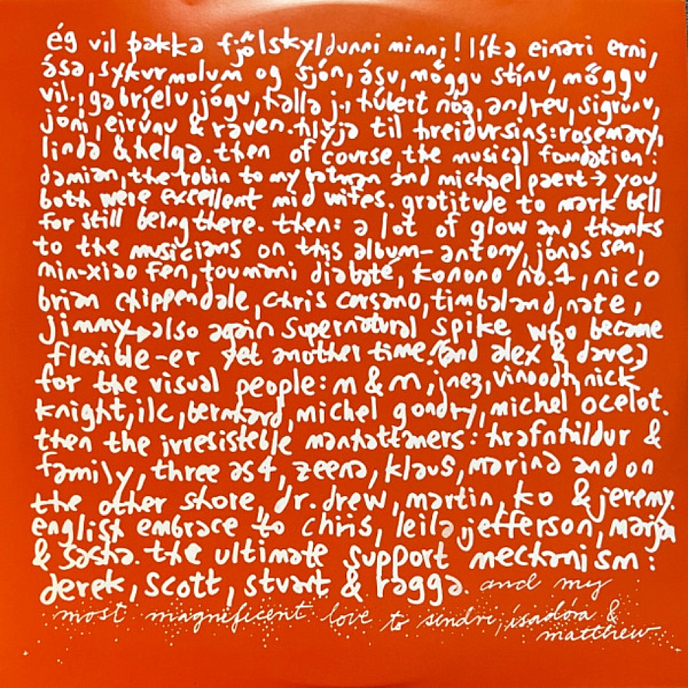 ég vil þakka fjölskyldunni minni! líka einari erni,
ása, sykurmolum og sjón, ásu, möggu stínu, möggu
vil., gabríelu, jógu, halla j., húbert nóa, andreu, sigrúnu,
jóni, eirúnu & raven. hlýja til hreiðursins: rosemary,
linda & helga. then of course the musical foundation:
damian, the robin to my batman and michael paert → you
both were excellent mid wifes. gratitude to mark bell
for still being there. then: a lot of glow and thanks
to the musicians on this album - antony, jónas sen,
min-xiao fen, toumani diabate, konono no.1, nico
brian chippendale, chris corsano, timbaland, nate,
jimmy → also again supernatural spike who became
flexible-er yet another time! and alex & dave;
for the visual people: m & m, inez, vinoodh, nick
knight, ilc, bernhard, michel gondry, michel ocelot.
then the irresistible manhattaners: hrafnhildur &
family, three as 4, zeena, klaus, marina and on
the other shore, dr. drew, martin, ko & jeremy.
english embrace to chris, leila, jefferson, maria
& sasha. the ultimate support mechanism:
derek, scott, stuart & ragga. and my
most magnificent love to sindri, ísadóra &
matthew